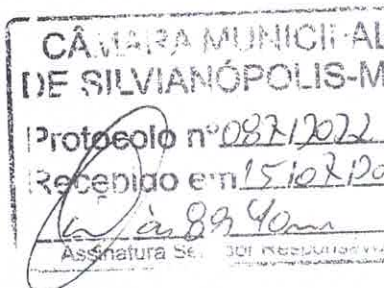 CÂMARA MUNICIPAL
DE SILVIANÓPOLIS-M
Protocolo nº 087/2022
Recebido em 15/07/20
às 8h 40m
Assinatura Servidor Responsável